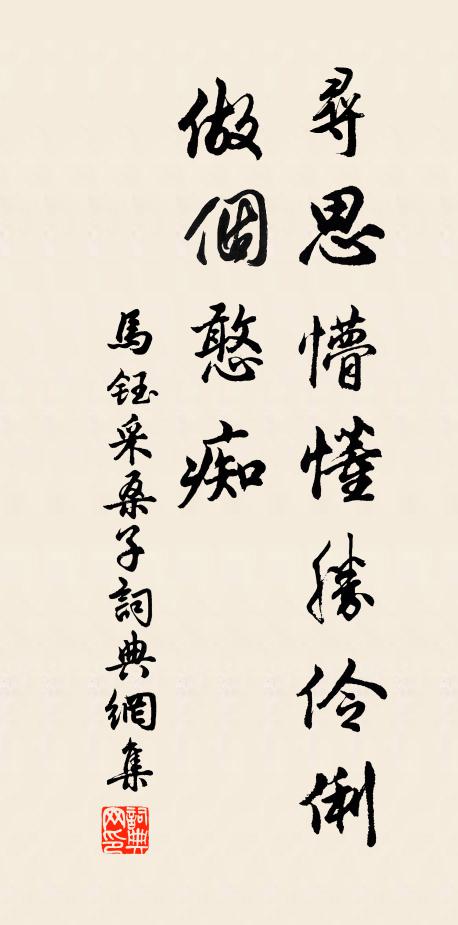 尋思懵懂勝伶俐
做個憨痴
馬鈺采桑子詞典網集
詞典網印